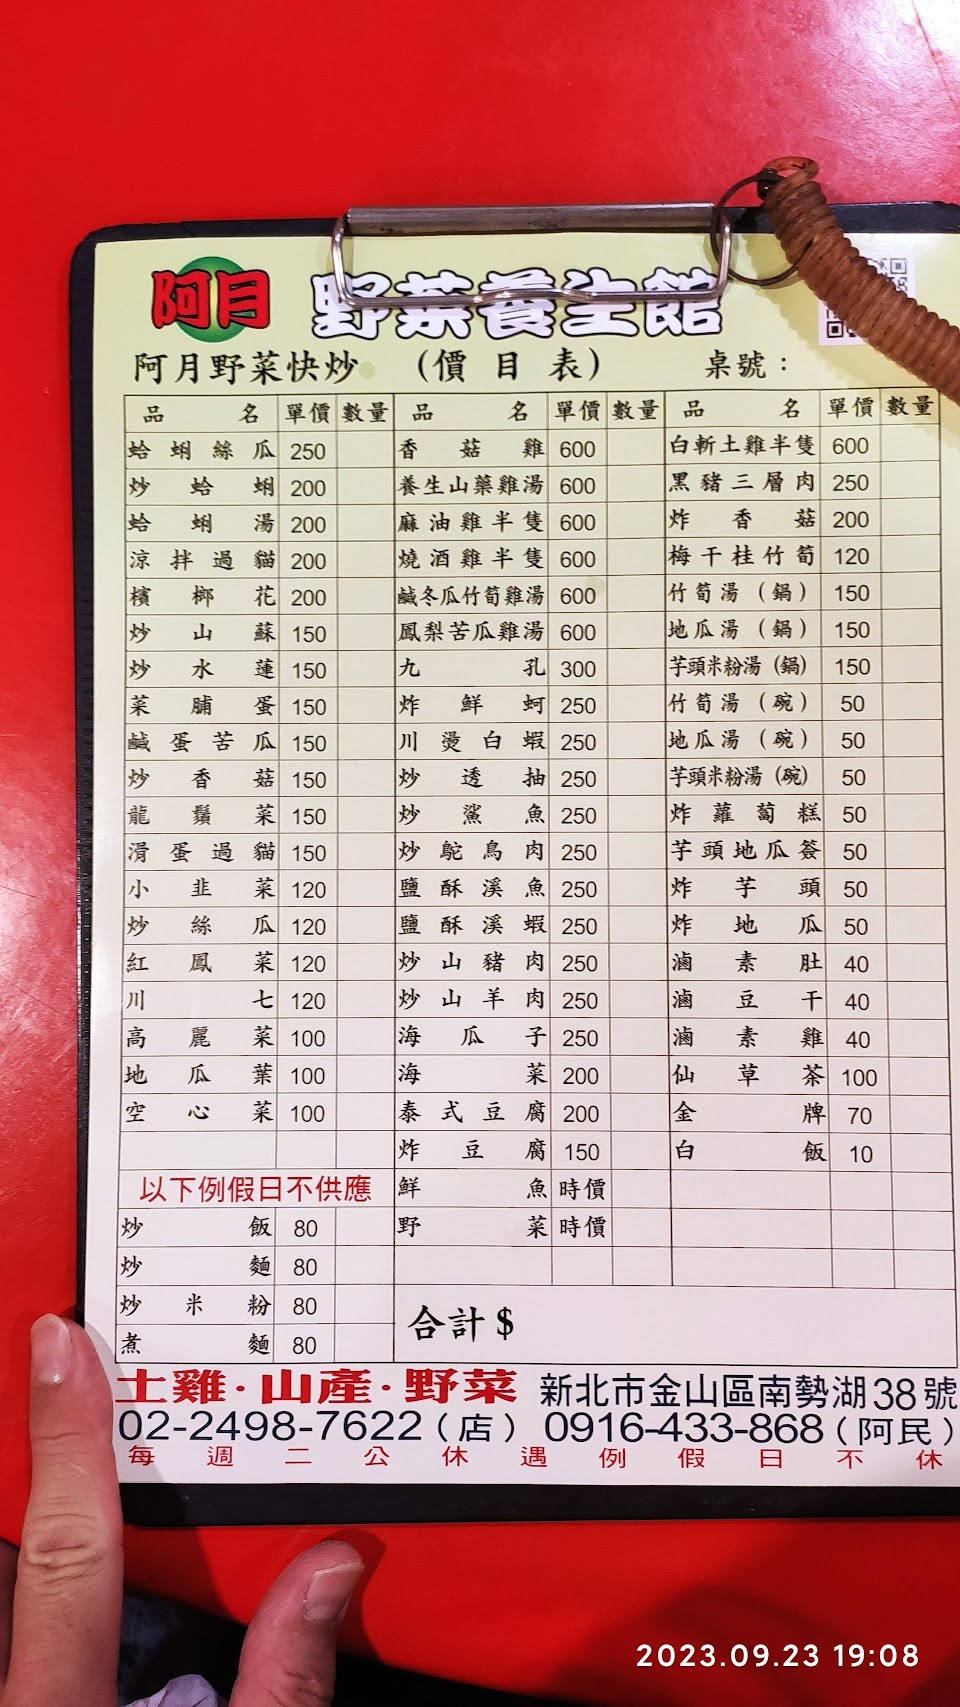 阿月 野菜養生館
阿月野菜快炒 (價目表) 桌號：
品名 單價 數量 品名 單價 數量 品名 單價 數量
蛤蜊絲瓜 250 香菇雞 600 白斬土雞半隻 600
炒蛤蜊 200 養生山藥雞湯 600 黑豬三層肉 250
蛤蜊湯 200 麻油雞半隻 600 炸香菇 200
涼拌過貓 200 燒酒雞半隻 600 梅干桂竹筍 120
檳榔花 200 鹹冬瓜竹筍雞湯 600 竹筍湯（鍋） 150
炒山蘇 150 鳳梨苦瓜雞湯 600 地瓜湯（鍋） 150
炒水蓮 150 九孔 300 芋頭米粉湯（鍋） 150
菜脯蛋 150 炸鮮蚵 250 竹筍湯（碗） 50
鹹蛋苦瓜 150 川燙白蝦 250 地瓜湯（碗） 50
炒香菇 150 炒透抽 250 芋頭米粉湯（碗） 50
龍鬚菜 150 炒鯊魚 250 炸蘿蔔糕 50
滑蛋過貓 150 炒鴕鳥肉 250 芋頭地瓜簽 50
小韭菜 120 鹽酥溪魚 250 炸芋頭 50
炒絲瓜 120 鹽酥溪蝦 250 炸地瓜 50
紅鳳菜 120 炒山豬肉 250 滷素肚 40
川七 120 炒山羊肉 250 滷豆干 40
高麗菜 100 海瓜子 250 滷素雞 40
地瓜葉 100 海菜 200 仙草茶 100
空心菜 100 泰式豆腐 200 金牌 70
炸豆腐 150 白飯 10
以下例假日不供應 鮮魚 時價
炒飯 80 野菜 時價
炒麵 80
炒米粉 80 合計$
煮麵 80
土雞·山產·野菜 新北市金山區南勢湖38號
02-2498-7622（店） 0916-433-868（阿民）
每週二公休遇例假日不休
2023.09.23 19:08